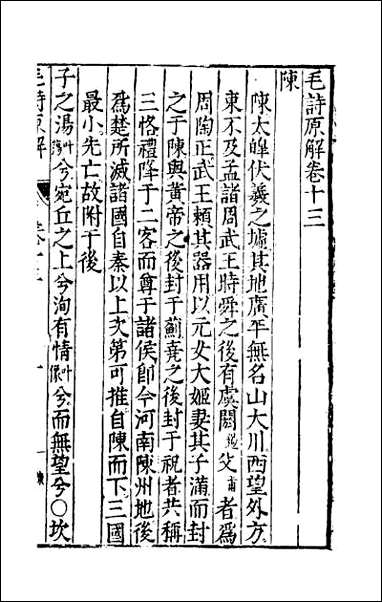 毛詩原解卷十三
陳
陳太皥伏羲之墟其地廣平無名山大川西望外方
東不及孟諸周武王時舜之後有虞閼遏父甫者爲
周陶正武王賴其器用以元女大姬妻其子滿而封
之于陳與黃帝之後封于薊堯之後封于祝者共稱
三恪禮降于二客而尊于諸侯卽今河南陳州地後
爲楚所滅諸國自秦以上次第可推自陳而下三國
最小先亡故附于後
子之湯叶蕩兮宛丘之上兮洵有情叶像兮而無望兮○坎
毛詩原解 卷十三 一 陳